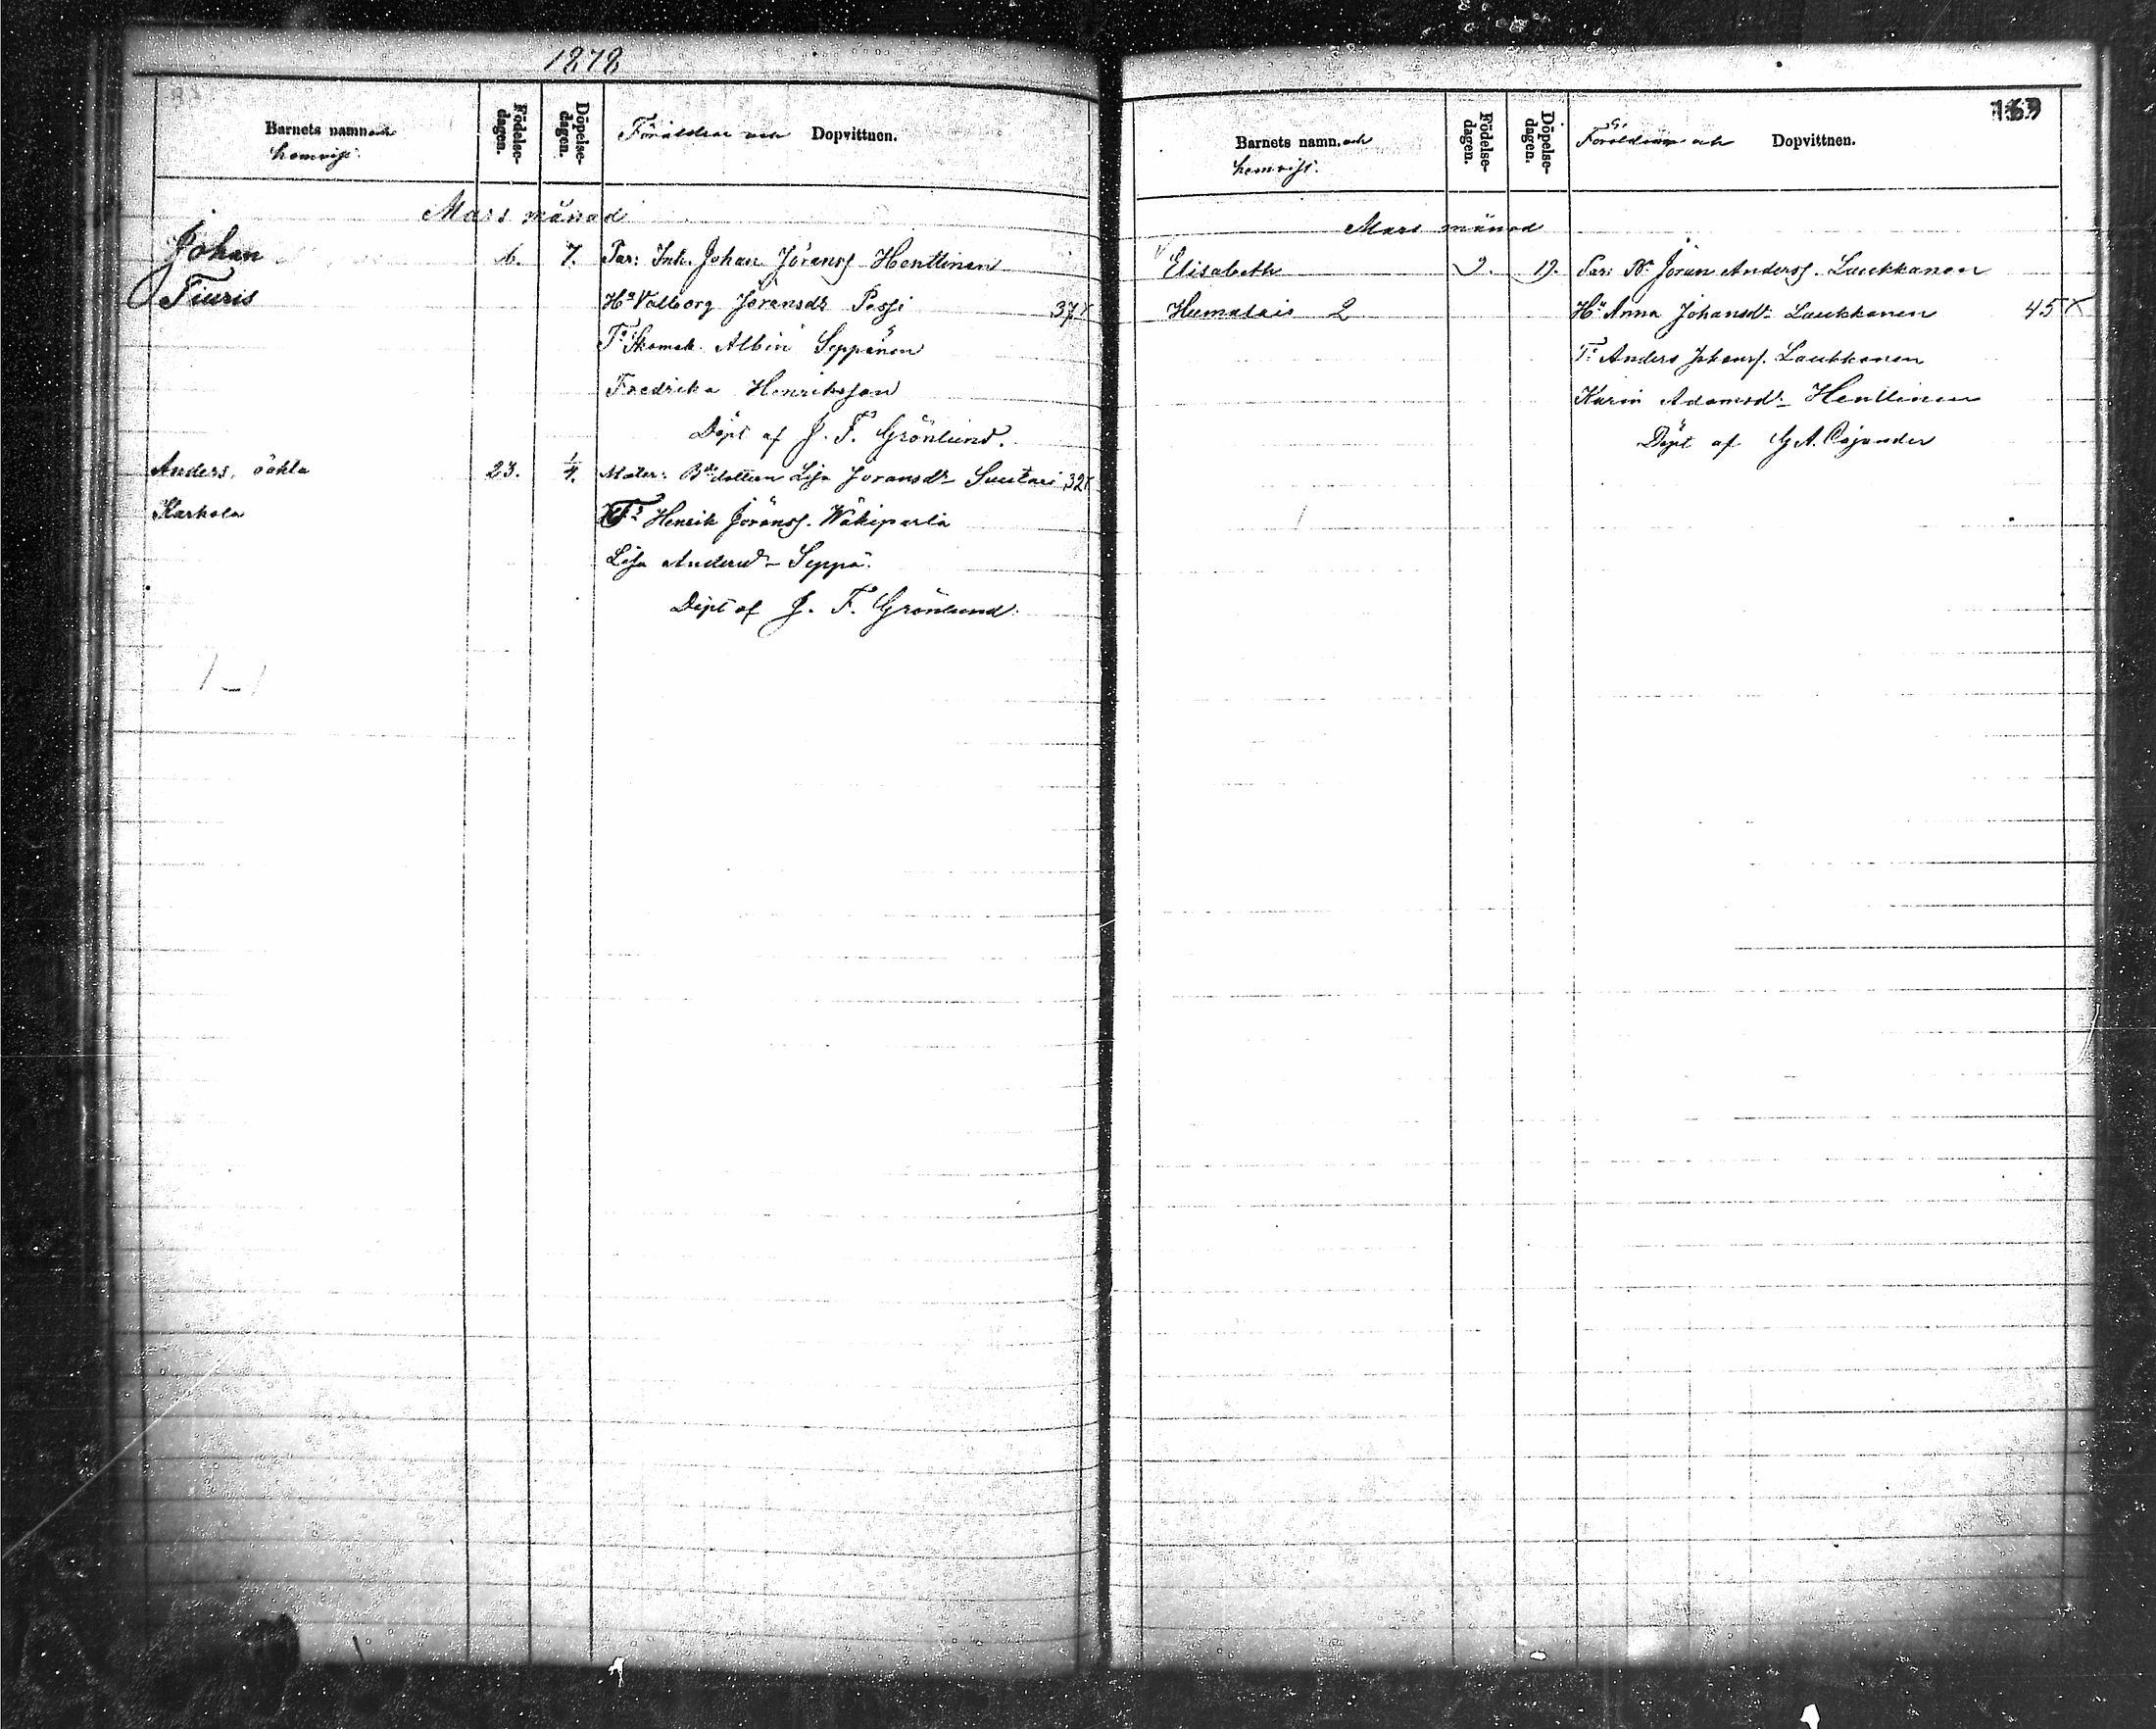 1878
Barnets namn och
hemvist.
Födelse-
dagen.
Döpelse-
dagen.
Föräldrar och Dopvittnen.
Mars månad
Johan 6. 7. Par: Inh. Johan Jöranss Henttinen
Tiuris Hu Valborg Jöransdr Possi 37
Ts Skomak. Albin Seppänen
Fredrika Henriksson
Döpt af J. F. Grönlund.
Anders, oäkta 23. 1/4. Mater: Lisa Jöransdr Suutari 32
Karhola Ts Henrik Jöranss. Wäkiparta
Lisa Andersdr Seppä.
Döpt af J. F. Grönlund.
169
Barnets namn och
hemvist.
Födelse-
dagen.
Döpelse-
dagen.
Föräldrar och Dopvittnen.
Mars månad
Elisabeth 9. 19. Par: Jöran Anderss. Laukkanen
Humalais 2 Hu Anna Johansdr Laukkanen 45
Ts Anders Johanss. Laukkanen
Karin Adamsdr Henttinen
Döpt af G. A. Cajander